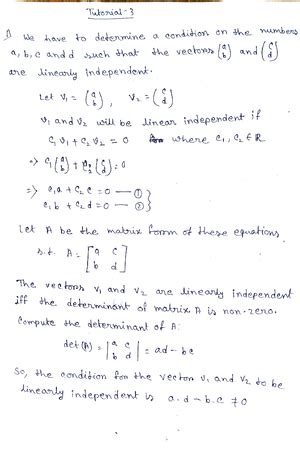 Tutorial-3
1) We have to determine a condition on the numbers
a, b, c and d such that the vectors (a b) and (c d)
are linearly independent.
Let V₁ = (a b), V₂ = (c d)
V₁ and V₂ will be linear independent if
C₁V₁ + C₂V₂ = 0 where C₁, C₂ ∈ R
=> C₁(a b) + C₂(c d) = 0
=> C₁a + C₂c = 0 — ①
C₁b + C₂d = 0 — ②
Let A be the matrix form of these equations
s.t. A = [a c
b d]
The vectors V₁ and V₂ are linearly independent
iff the determinant of matrix A is non-zero.
Compute the determinant of A:
det(A) = |a c
b d| = ad - bc
So, the condition for the vector V₁ and V₂ to be
linearly independent is a.d - b.c ≠ 0